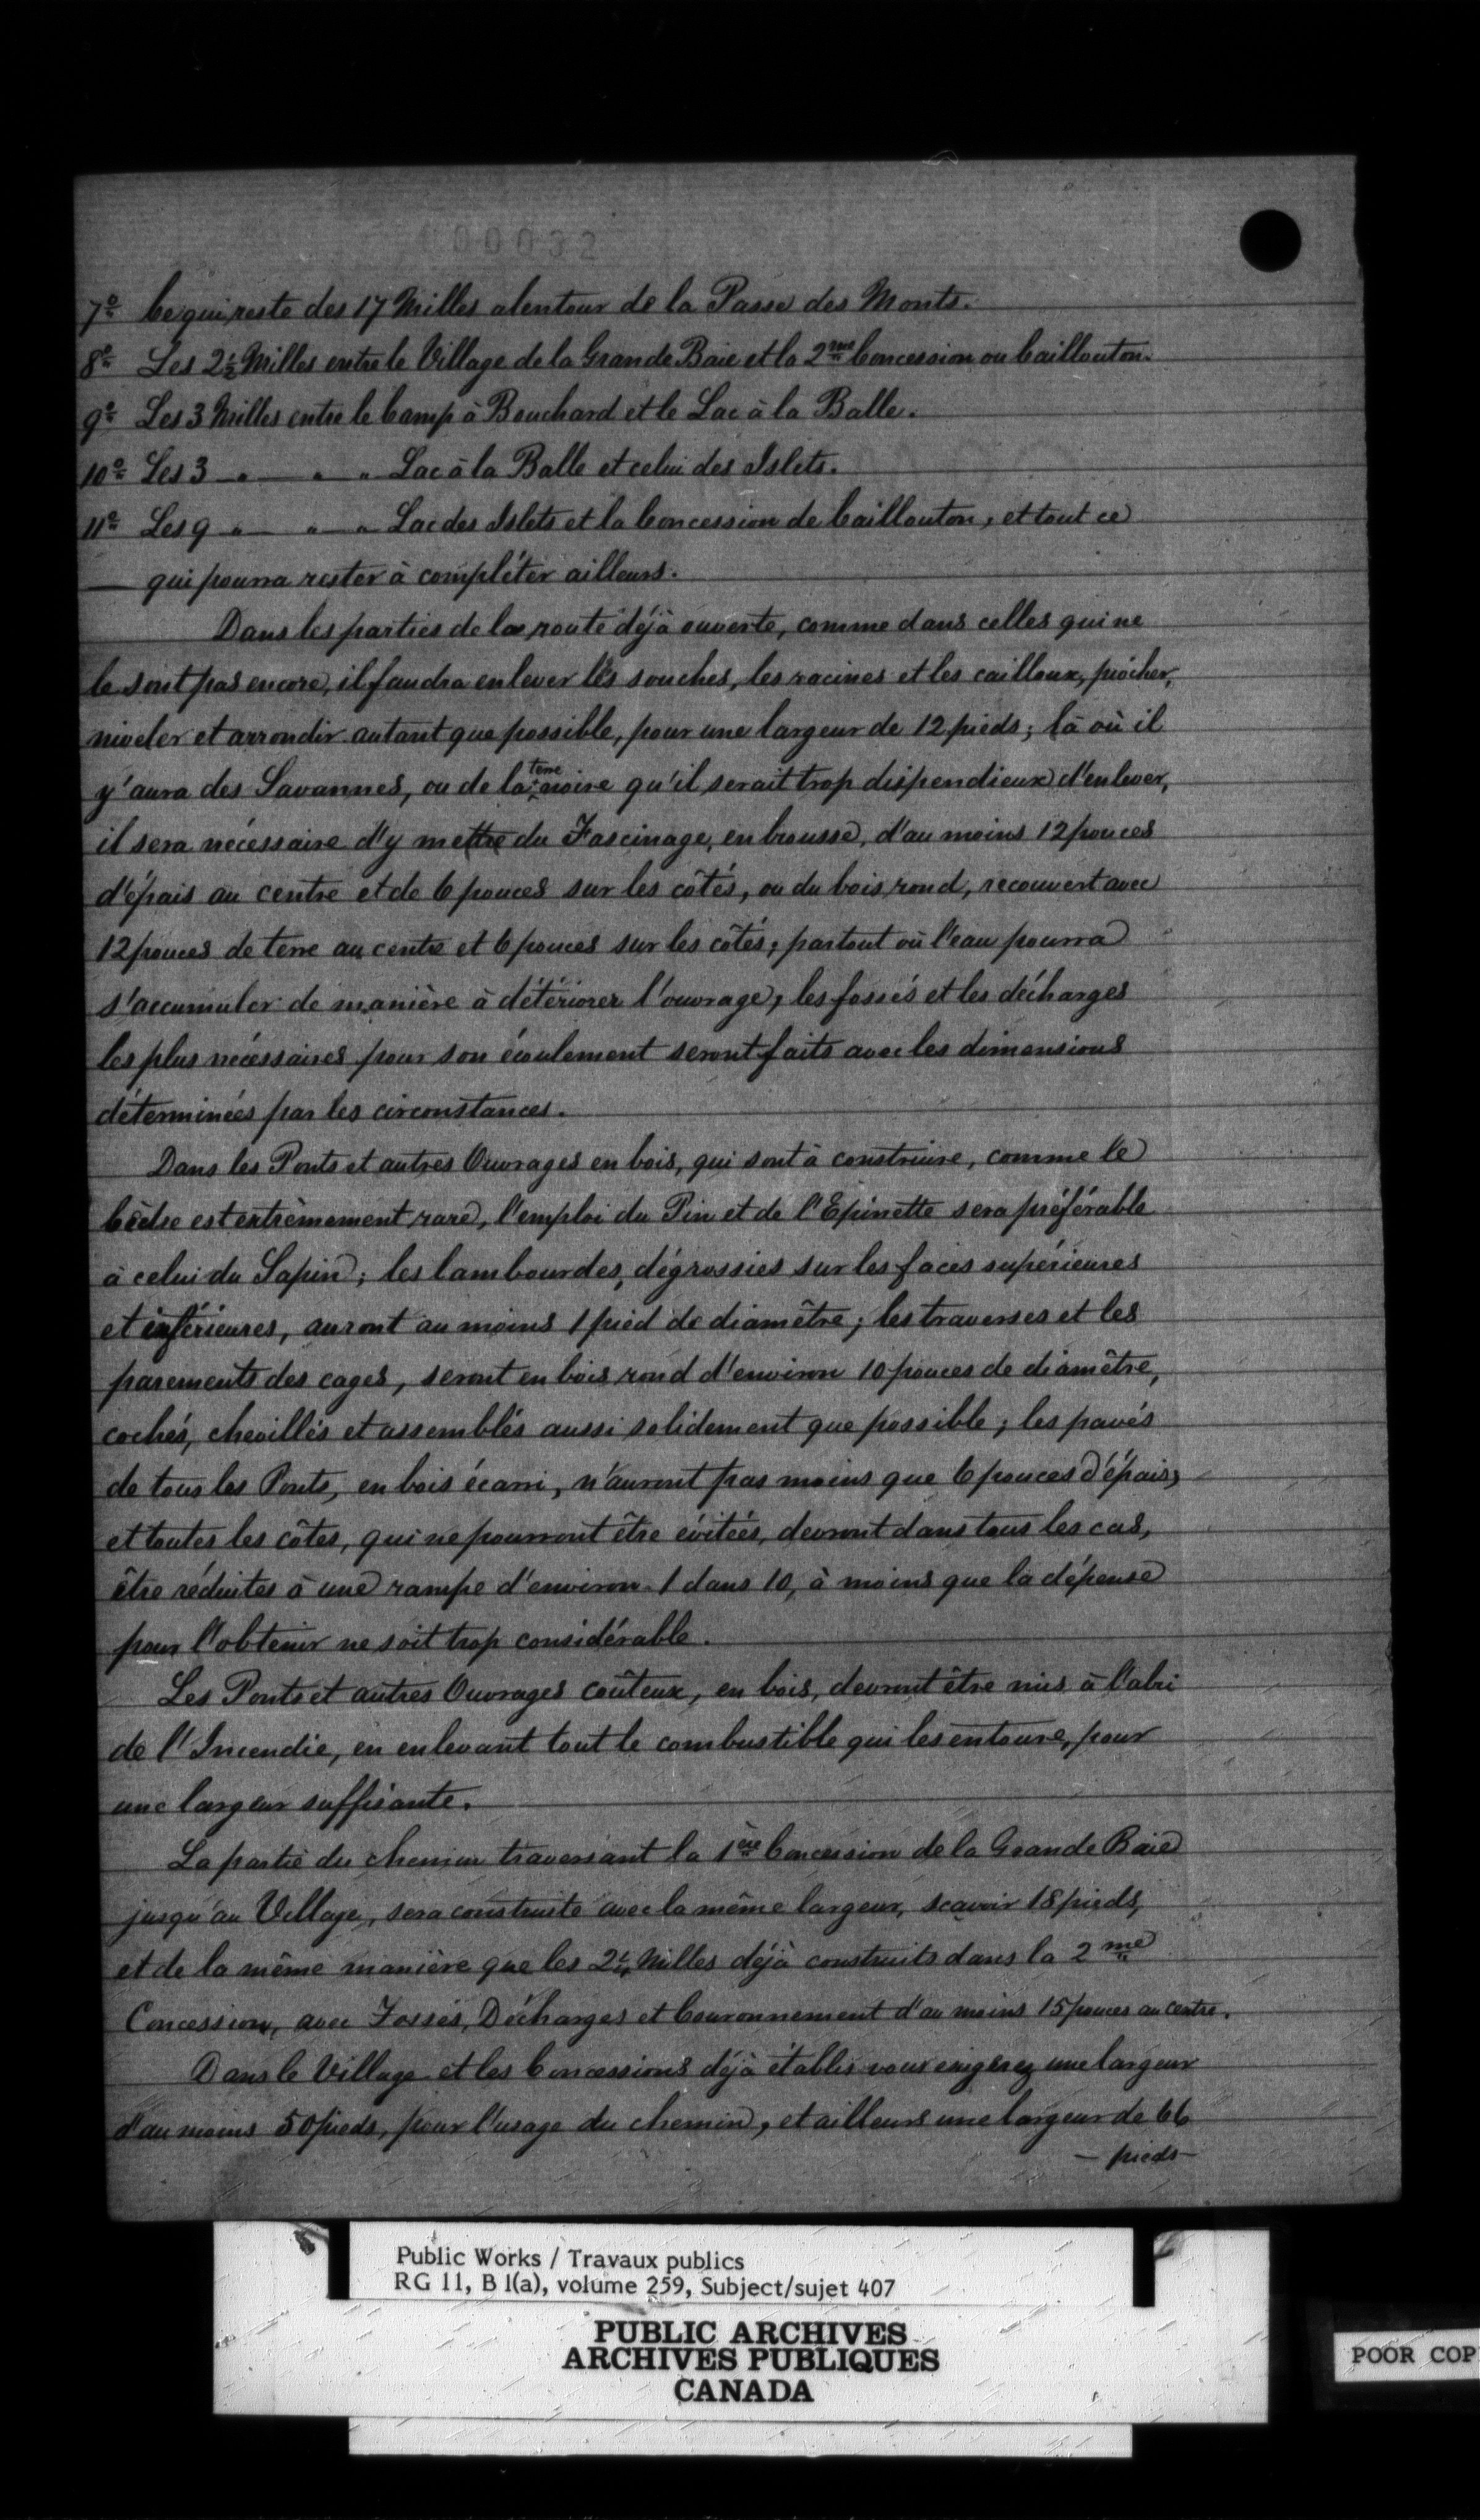 000032
7o Ce qui reste des 17 Milles alentour de la Passe des Monts.
8o Les 2½ Milles entre le Village de la Grande Baie et la 2me Concession ou Caillouton.
9o Les 3 Milles entre le Camp à Bouchard et le Lac à la Balle.
10o Les 3 — " — " — " Lac à la Balle et celui des Islets.
11o Les 9 " — " — " Lac des Islets et la Concession de Caillouton, et tout ce
— qui pourra rester à compléter ailleurs.
Dans les parties de la route déjà ouverte, comme dans celles qui ne
le sont pas encore, il faudra enlever les souches, les racines et les cailloux, piocher,
niveler et arrondir autant que possible, pour une largeur de 12 pieds; là où il
y'aura des Savannes, ou de la terre noire qu'il serait trop dispendieux d'enlever,
il sera nécessaire d'y mettre du Fascinage, en brousse, d'au moins 12 pouces
d'épais au centre et de 6 pouces sur les côtés, ou du bois rond, recouvert avec
12 pouces de terre au centre et 6 pouces sur les côtés; partout où l'eau pourra
s'accumuler de manière à détériorer l'ouvrage, les fossés et les décharges
les plus nécessaires pour son écoulement seront faits avec les dimensions
déterminées par les circonstances.
Dans les Ponts et autres Ouvrages en bois, qui sont à construire, comme le
Cèdre est extrèmement rare, l'emploi du Pin et de l'Epinette sera préférable
à celui du Sapin; les lambourdes, dégrossies sur les faces supérieures
et inférieures, auront au moins 1 pied de diamêtre; les traverses et les
parements des cages, seront en bois rond d'environ 10 pouces de diamêtre,
cochés, chevillés et assemblés aussi solidement que possible; les pavés
de tous les Ponts, en bois écarri, n'auront pas moins que 6 pouces d'épais;
et toutes les côtes, qui ne pourront être évitées, devront dans tous les cas,
être réduites à une rampe d'environ 1 dans 10, à moins que la dépense
pour l'obtenir ne soit trop considérable.
Les Ponts et autres Ouvrages coûteux, en bois, devront être mis à l'abri
de l'Incendie, en enlevant tout le combustible qui les entoure, pour
une largeur suffisante.
La partie du chemin traversant la 1ère Concession de la Grande Baie
jusqu'au Village, sera construite avec la même largeur, scavoir 18 pieds,
et de la même manière que les 2¼ Milles déjà construits dans la 2me
Concession, avec Fossés, Décharges et Couronnement d'au moins 15 pouces au centre.
Dans le Village et les Concessions déjà établis vous exigerez une largeur
d'au moins 50 pieds, pour l'usage du chemin, et ailleurs une largeur de 66
— pieds —
Public Works / Travaux publics
RG 11, B 1(a), volume 259, Subject/sujet 407
PUBLIC ARCHIVES
ARCHIVES PUBLIQUES
CANADA
POOR COP